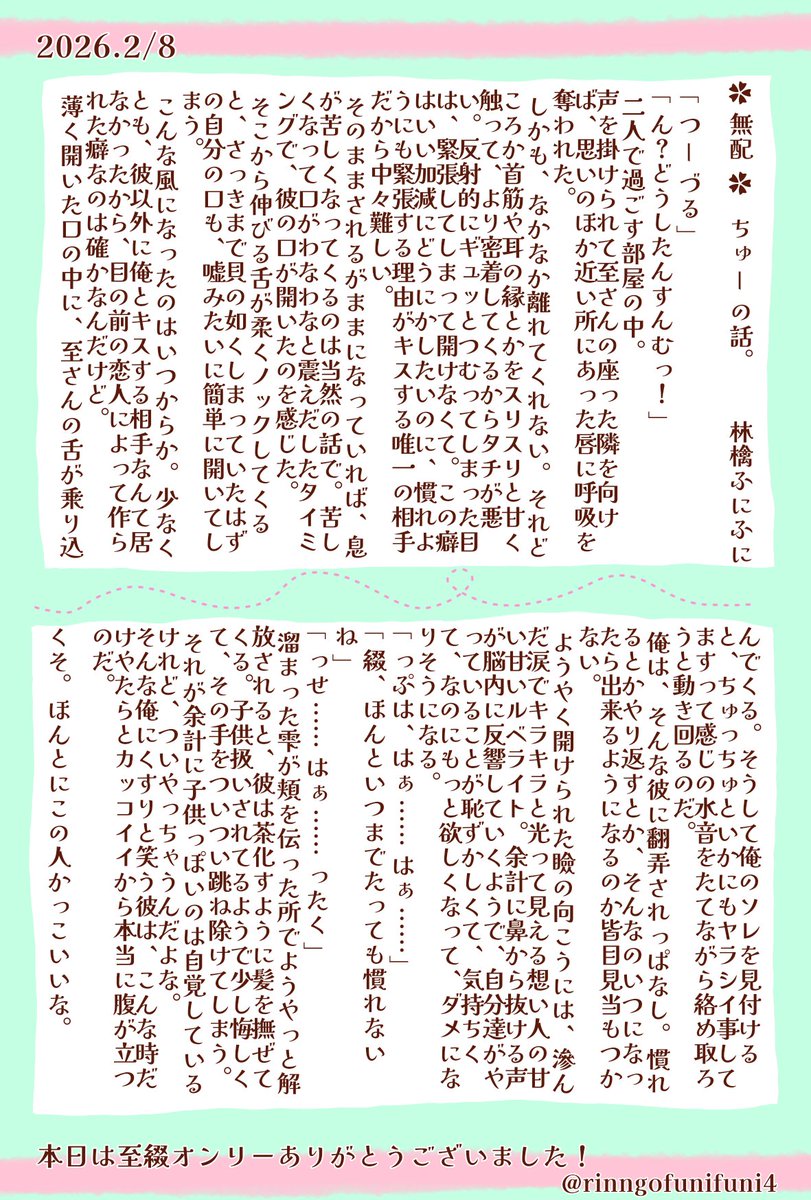 2026.2/8
✿無配✿ ちゅーの話。 林檎ふにふに
「つーづる」
「ん？どうしたんすんむっ！」
二人で過ごす部屋の中。
声を掛けられて至さんの座った隣を向け
ば、思いのほか近い所にあった唇に呼吸を
奪われた。
しかも、なかなか離れてくれない。それど
ころか首筋や耳の縁とかをスリスリと甘く
触って、より密着してくるからタチが悪
い。反射的にギュッとつむってしまった目
は、緊張してしまって開けなくて。この癖
はいい加減にどうにかしたいのに、慣れよ
うにも緊張する理由がキスする唯一の相手
だから中々難しい。
そのままされるがままになっていれば、息
が苦しくなってくるのは当然の話で。苦し
くなって口がわなわなと震えだしたタイミ
ングで、彼の口が開いたのを感じた。
そこから伸びる舌が柔くノックしてくる
と、さっきまで貝の如くしまっていたはず
の自分の口も、嘘みたいに簡単に開いてし
まう。
こんな風になったのはいつからか。少なく
とも、彼以外に俺とキスする相手なんて居
なかったから、目の前の恋人によって作ら
れた癖なのは確かなんだけど。
薄く開いた口の中に、至さんの舌が乗り込
んでくる。そうして俺のソレを見付ける
と、ちゅっちゅといかにもヤラシイ事して
ますって感じの水音をたてながら絡め取ろ
うと動き回るのだ。
俺は、そんな彼に翻弄されっぱなし。慣れ
るとかやり返すとか、そんなのいつになっ
たら出来るようになるのか皆目見当もつか
ない。
ようやく開けられた瞼の向こうには、滲ん
だ涙でキラキラと光って見える想い人の甘
い甘いルベライト。余計に鼻から抜ける声
が脳内に反響していくようで、自分達がや
っていることが恥ずかしくて、気持ちく
て、なのにもっと欲しくなって、ダメにな
りそうになる。
「っぷは、はぁ……はぁ……」
「綴、ほんといつまでたっても慣れない
ね」
「っせ……はぁ……ったく」
溜まった雫が頬を伝った所でようやっと解
放されると、彼は茶化すように髪を撫ぜて
くる。子供扱いされてるようで少し悔しく
て、その手をついつい跳ね除けてしまう。
それが余計に子供っぽいのは自覚している
けれど、ついやっちゃうんだよな。
そんな俺にくすりと笑う彼は、こんな時だ
けやたらとカッコイイから本当に腹が立つ
のだ。
くそ。ほんとにこの人かっこいいな。
本日は至綴オンリーありがとうございました！
@rinngofunifuni4